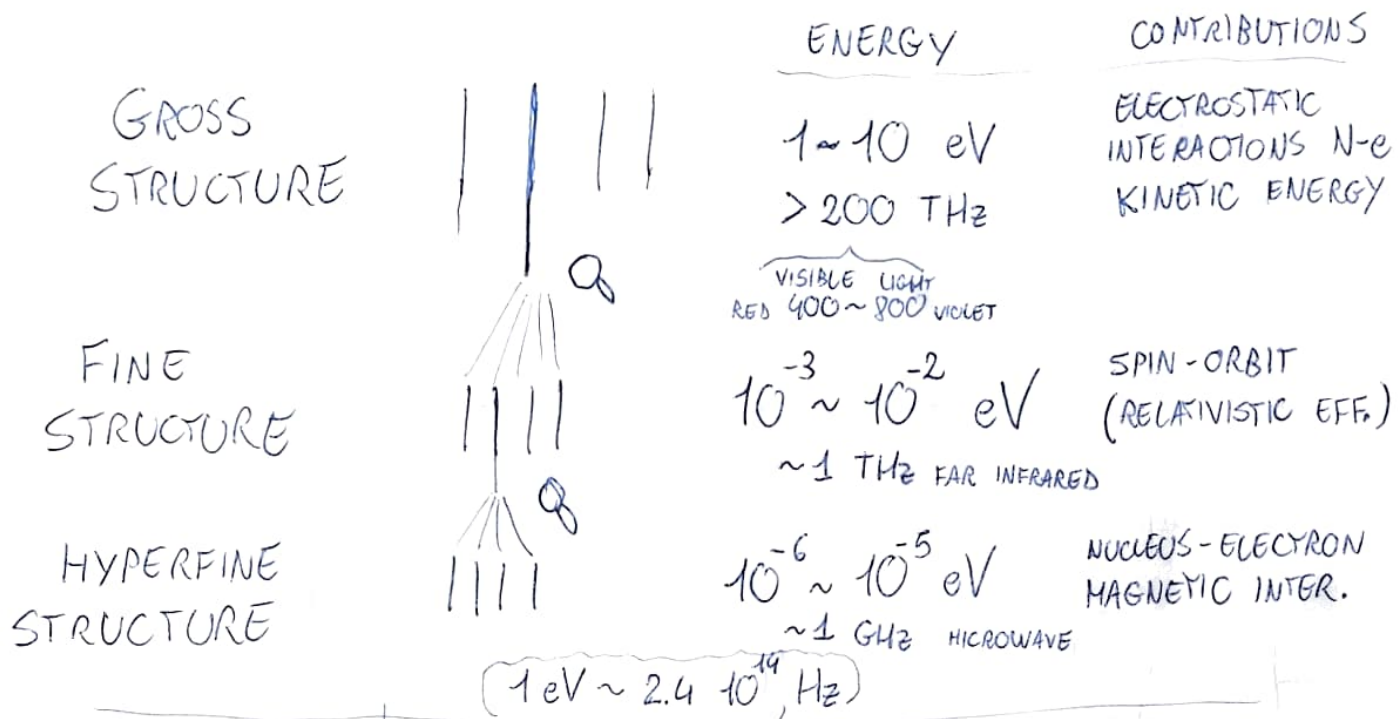 ENERGY CONTRIBUTIONS
GROSS
STRUCTURE
1~10 eV
> 200 THz
VISIBLE LIGHT
RED 400~800 VIOLET
ELECTROSTATIC
INTERACTIONS N-e
KINETIC ENERGY
FINE
STRUCTURE
10^-3 ~ 10^-2 eV
~1 THz FAR INFRARED
SPIN-ORBIT
(RELATIVISTIC EFF.)
HYPERFINE
STRUCTURE
10^-6 ~ 10^-5 eV
~1 GHz MICROWAVE
NUCLEUS-ELECTRON
MAGNETIC INTER.
1 eV ~ 2.4 10^14 Hz